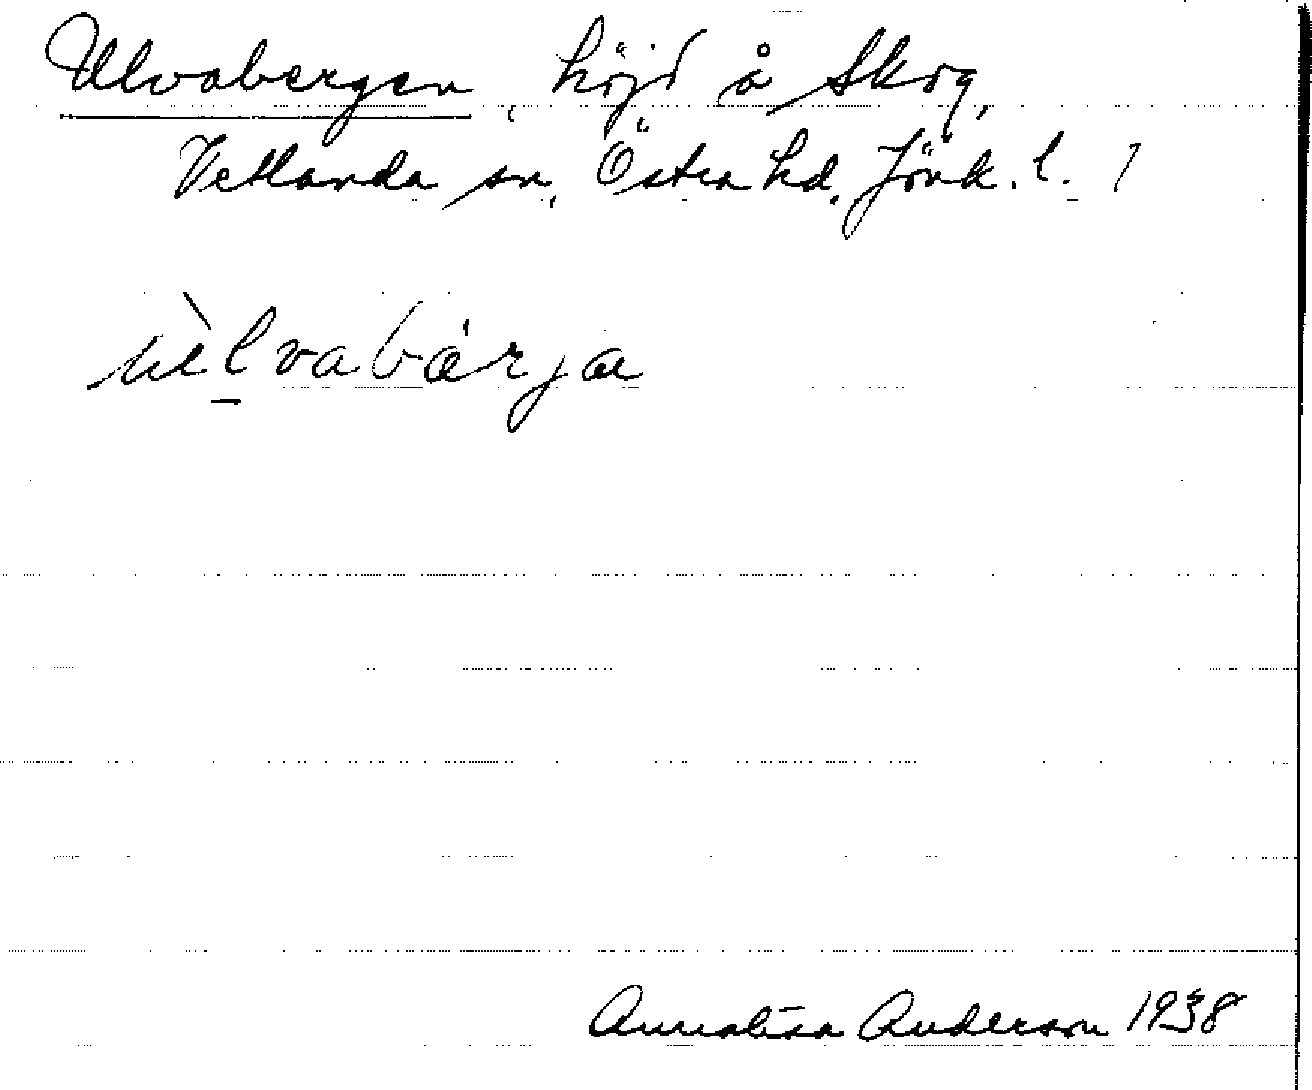 Ulvabergen, höjd å Skog,
Vetlanda sn, Östra hd. Jönk. l.
ùlvabärja
Annalisa Anderson 1938